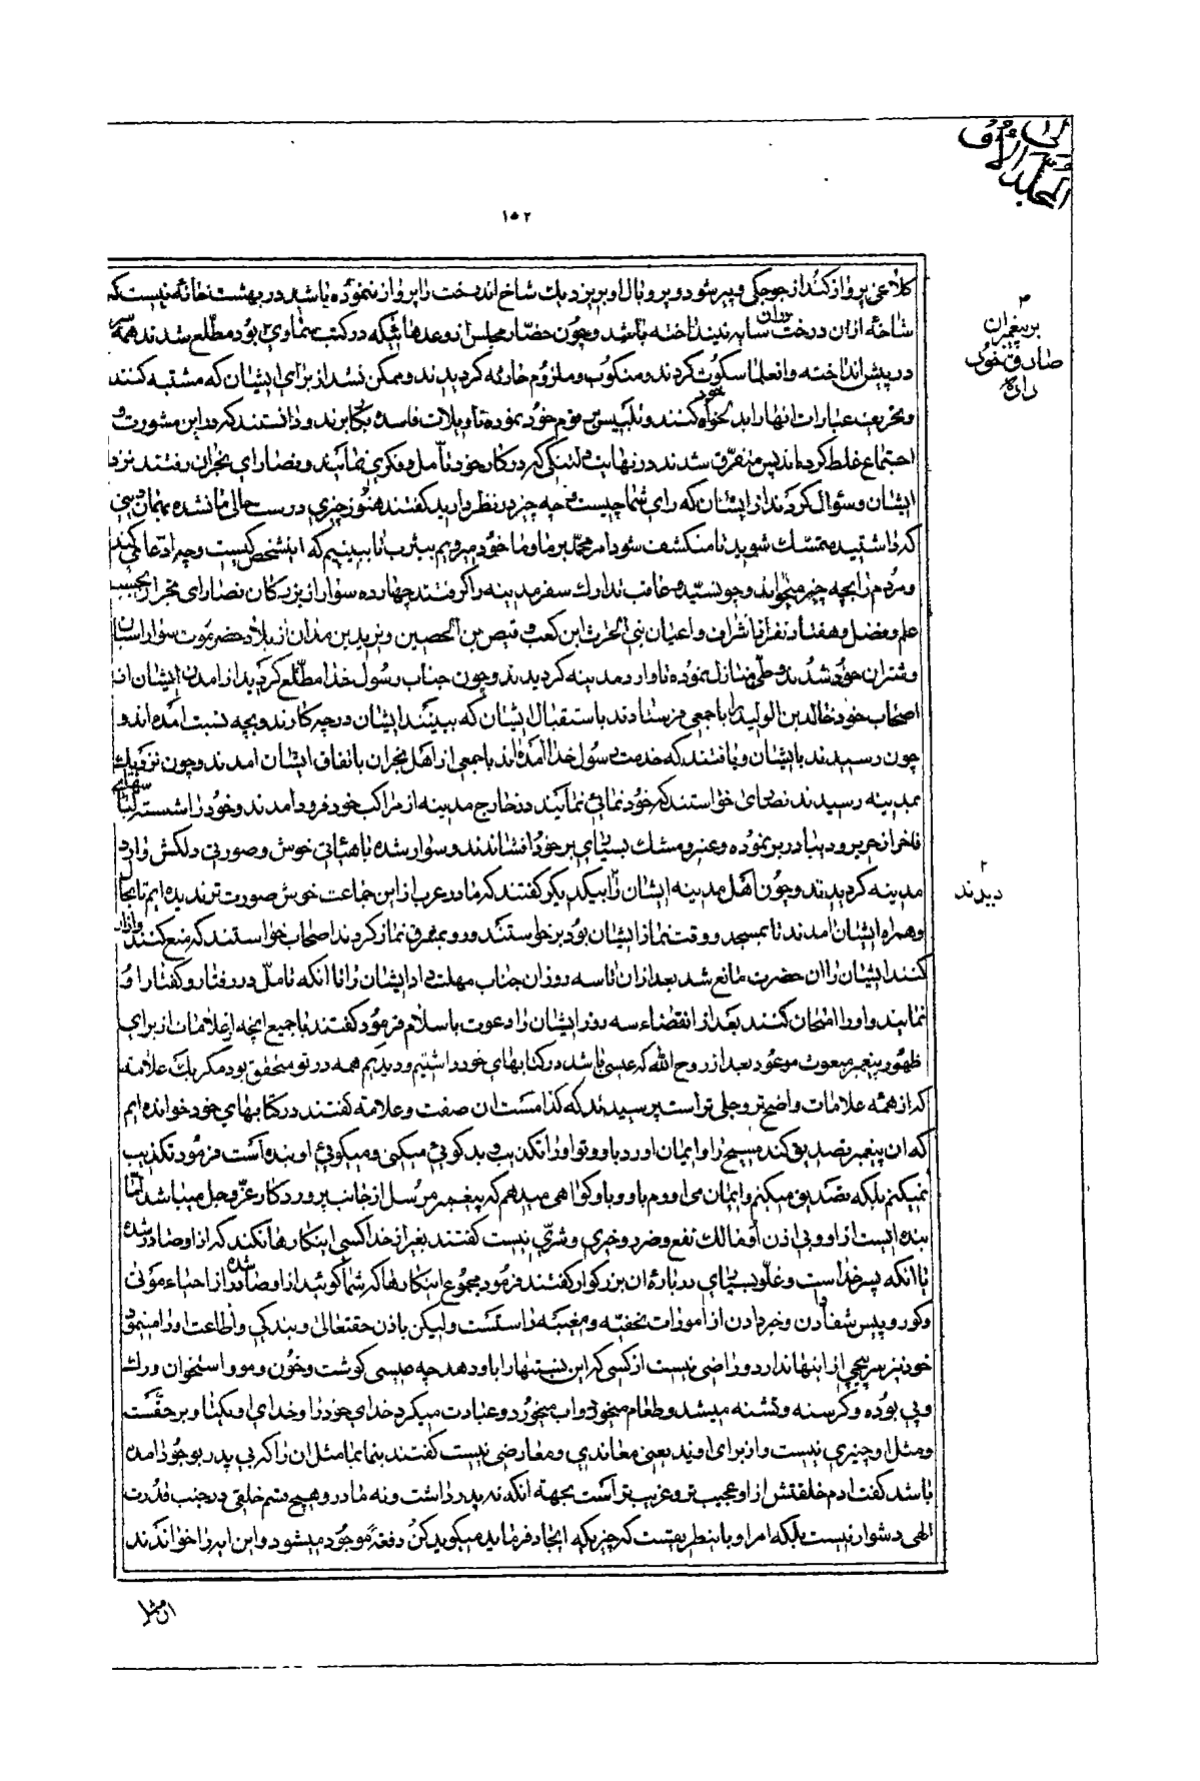 المجلد الاول
١٥٢
کلاغی پرواز کند از جوجکی و پیر شود و پر و بال او بریزد یك شاخ اندرخت را پرواز ننموده باشد در بهشت خانهٔ نیست که
شاخهٔ ازان درخت دران سایه نینداخته باشد و چون حضار مجلس از وعدهائیکه در کتب سماوی بود مطلع شدند همه سر
در پیش انداخته و انعلما سکوت کردند و منکوب و ملزوم حارثه کردیدند و ممکن نشد از برای ایشان که مشتبه کنند
و تحریف عبارات انها را بدلخواه خود کنند و تلبیس بر قوم خود نموده تاویلات فاسده بکار برند و دانستند که در این مشورت و
اجتماع غلط کرده‌اند پس متفرق شدند در نهایت دلتنگی که در کار خود تأمل و فکری نمایند و نصارای نجران رفتند نزد
ایشان و سؤال کردند از ایشان که رای شما چیست و چه چیز در نظر دارید گفتند هنوز چیزی درست حالی ما نشده بهمان دینی
که داشتید متمسك شوید تا منکشف شود امر محمد بر ما و ما خود میرویم بیثرب تا ببینیم که اینشخص کیست و چه ادعا میکند
و مردم را بچه چیز میخواند و چون سید و عاقب تدارك سفر مدینه را گرفتند چهارده سوار از بزرگان نصارای نجران بحسب
علم و فضل و هفتاد نفر از اشراف و اعیان بنی الحرث ابن کعب و قیص بن الحصین و یزید بن مدان از بلاد حضرموت سوار اسبان
و شتران خود شدند و طی منازل نموده تا وارد مدینه کردیدند و چون جناب رسول خدا مطلع کردید از امدن ایشان از
اصحاب خود خالد بن الولید را با جمعی فرستادند باستقبال ایشان که ببینند ایشان در چه کارند و بچه نسبت امده اند و
چون رسیدند بایشان و یافتند که خدمت رسول خدا آمده‌اند با جمعی از اهل نجران باتفاق ایشان امدند و چون نزدیك
بمدینه رسیدند نصارای خواستند که خود نمائی نمایند در خارج مدینه از مراکب خود فرود امدند و خود را شسته لباسهای
فاخر از حریر و دیبا در بر نموده و عنبر و مشك بسیاری بر خود افشاندند و سوار شده با هیئاتی خوش و صورتی دلکش وارد
مدینه کردیدند و چون اهل مدینه ایشان را بیکدیگر گفتند که ما در عرب از این جماعت خوش صورت تر ندیده ایم تا بحال
و همراه ایشان امدند تا بمسجد و وقت نماز ایشان بود برخواستند و رو بمشرق نماز کردند اصحاب خواستند که منع کنند و ازار
کنند ایشان را ان حضرت مانع شد بعد ازان تا سه روز ان جناب مهلت داد ایشان را تا انکه تأمل در رفتار و گفتار او
نمایند و او را امتحان کنند بعد از انقضاء سه روز ایشان را دعوت باسلام فرمود گفتند با جمیع انچه از علامات از برای
ظهور پیغمبر مبعوث موعود بعد از روح الله که عیسی باشد در کتابهای خود داشتیم و دیدیم همه در تو متحقق بود مگر یك علامة
که از همه علامات واضح تر و جلی تر است پرسیدند که کدامست ان صفت و علامة گفتند در کتابهای خود خوانده ایم
که ان پیغمبر تصدیق کند مسیح را و ایمان اورد باو و تو او را تکذیب و بدگوئی میکنی و میگوئی او بنده است فرمود تکذیب
نمیکنم بلکه تصدیق میکنم و ایمان می اورم باو و باو گواهی میدهم که پیغمبر مرسل از جانب پروردگار عز و جل میباشد اما
بنده ایست از او و بی اذن او مالك نفع و ضرر و خیری و شری نیست گفتند بغیر از خدا کسی اینکارها نکند که از او صادر شده
با انکه پسر خداست و غلو بسیاری در بارهٔ ان بزرگوار کفتند فرمود مجموع اینکارها که شما گوئید از او صادر شده از احیاء موتی
و کور و پیس شفا دادن و خبر دادن از امورات مخفیه و مغیبه راستست ولیکن باذن حقتعالی و بندگی و اطاعت او را مینمود
خود نیز سر پیچی از اینها ندارد و راضی نیست از کسی که این نسبتها را باو دهد چه عیسی گوشت و خون و مو و استخوان و رك
و پی بوده و گرسنه و تشنه میشد و طعام میخورد و اب میخورد و عبادت میکرد خدای خود را و خدای او یکتا و بر حقست
و مثل او چیزی نیست و از برای او ند یعنی معاندی و معارضی نیست گفتند بنما بما مثل ان را که بی پدر بوجود امده
باشد گفت ادم خلقتش از او عجیب تر و غریب تر است بجهة انکه نه پدر داشت و نه مادر و هیچ قسم خلقی در جنب قدرت
الهی دشوار نیست بلکه امر او باینطریقست که چیزیکه ایجاد فرماید میگوید کن دفعة موجود میشود و این ایه را خواندند
ان مثل
٣
بر پیغمبران
صادق نمود
داده
٢
دیدند